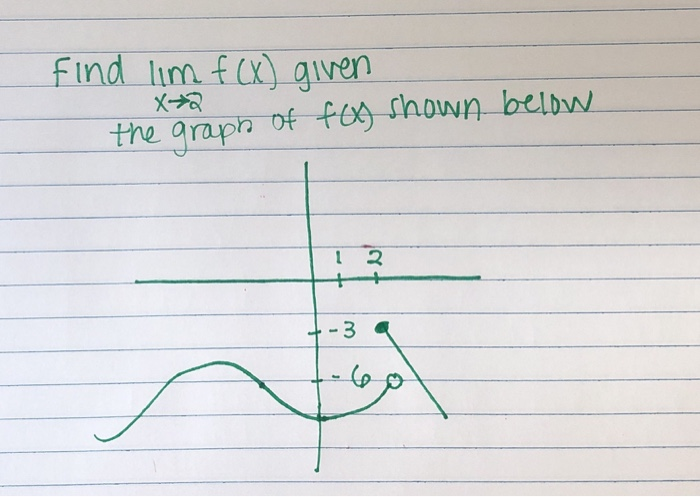 Find lim f(x) given
x→2
the graph of f(x) shown below
1 2
-3
-6